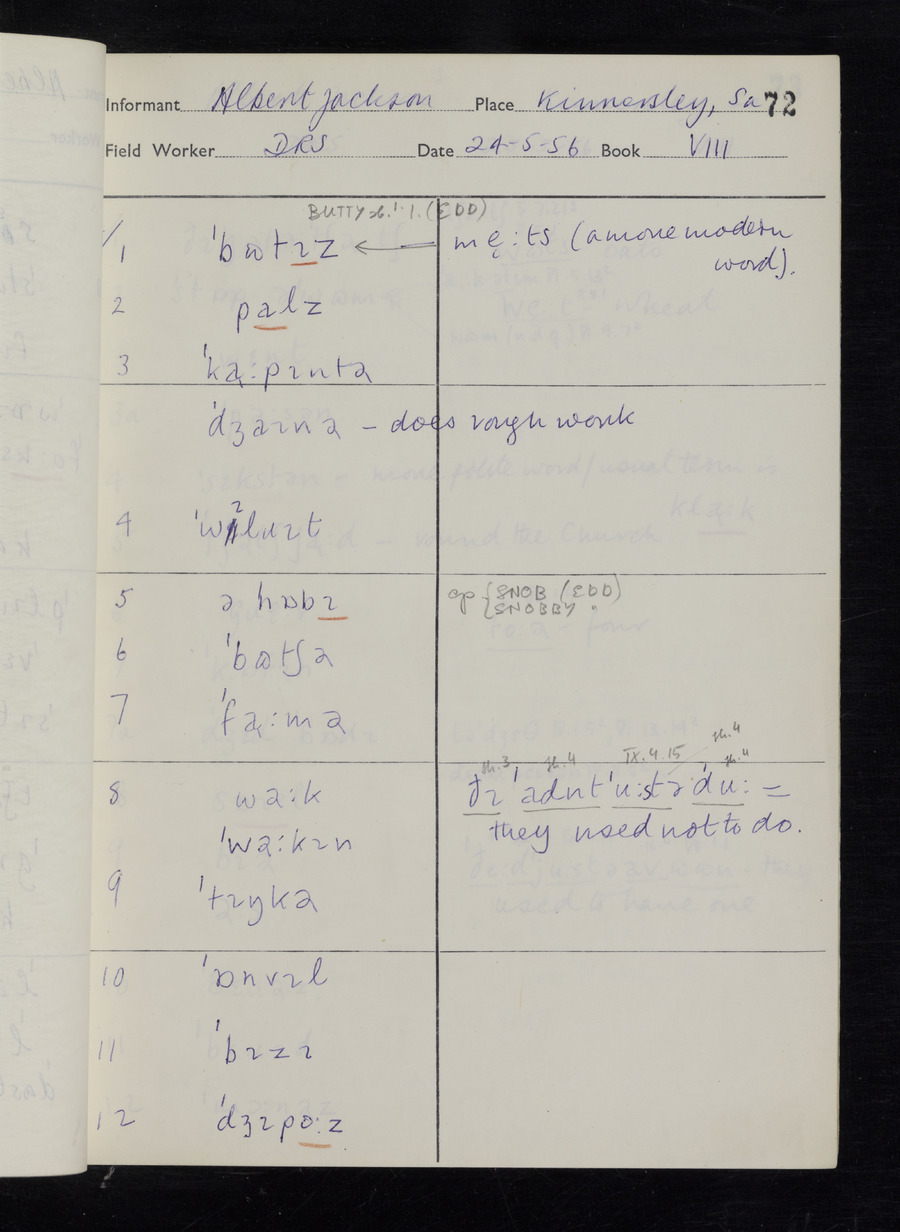 Informant Albert Jackson Place Kinnersley, Sa 72
Field Worker DRS Date 24-5-56 Book VIII
BUTTY sb.¹ 1. (EDD)
√1 ˈbɷtɪz ← mẹ:ts (a more modern
word).
2 palz
3 ˈkạ:pɪntə
ˈdʒaɪnə – does rough work
4
5 ə hɒbɪ cp {SNOB (EDD)
SNOBBY "
6 ˈbɷtʃə
7 ˈfạ:mə
ph.3 ph.4 IX.4.15 ph.4 ph.4
8 wə:k ðɪ ˈadnt ˈu:st ə ˈdu: =
they used not to do.
ˈwə:kɪn
9 ˈtɪŋkə
10 ˈɒnvɪl
11 ˈbɪzɪ
12 ˈdʒɪpo:z